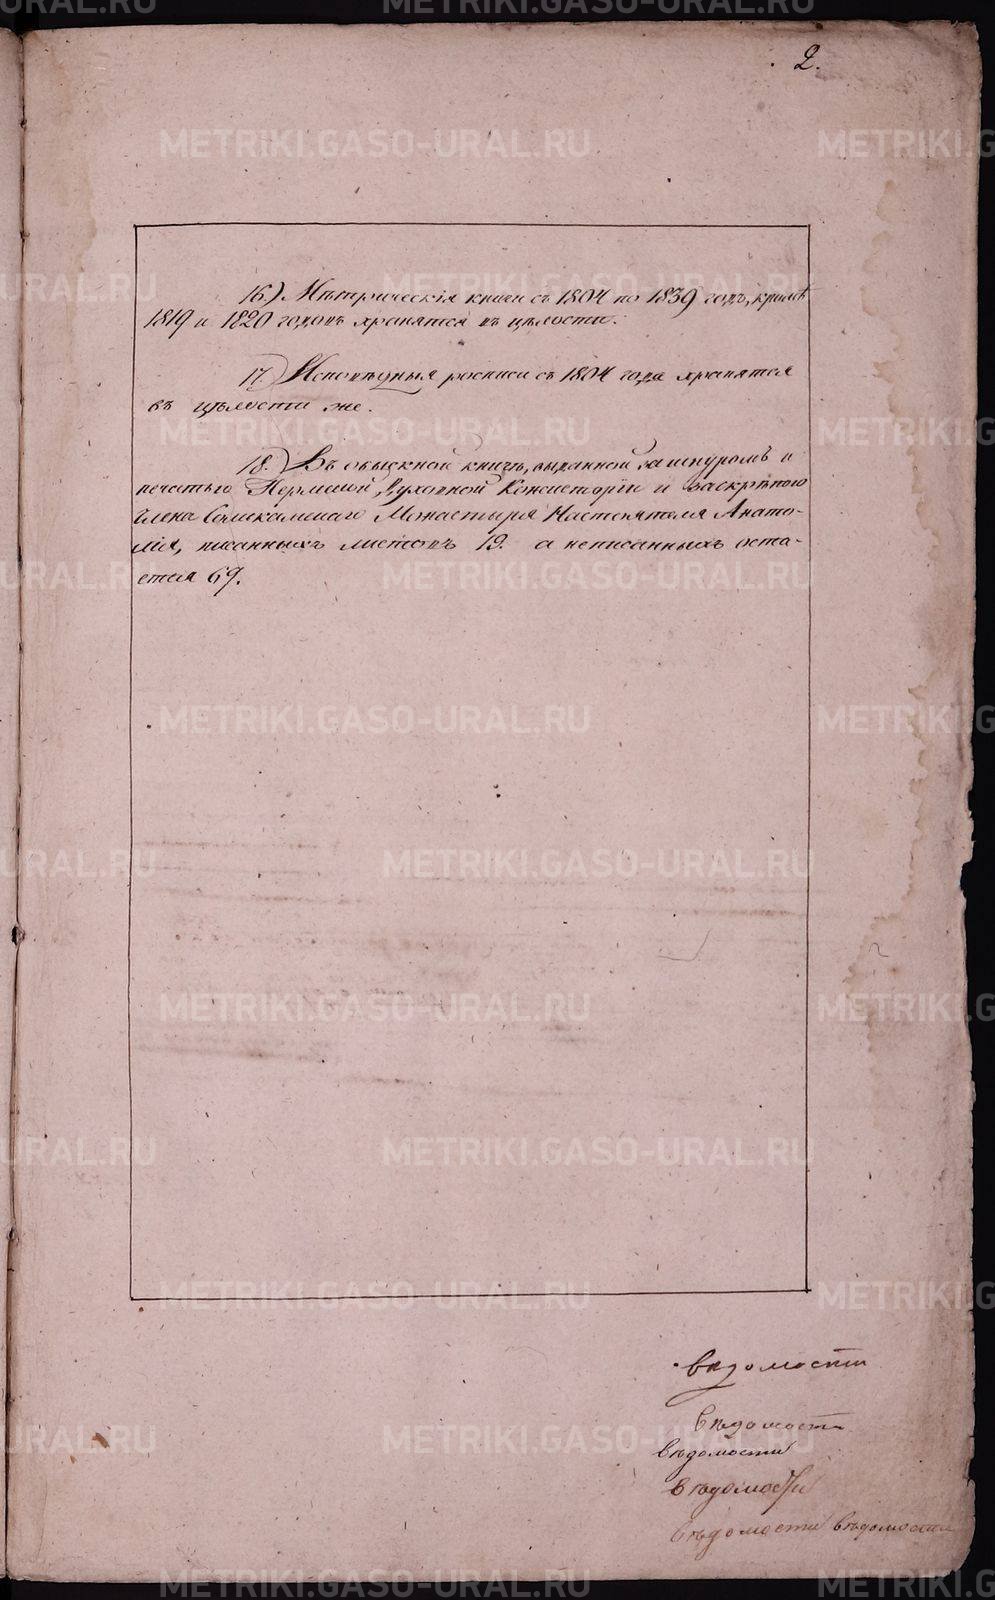 2.
16.) Метрическія книги съ 1804 по 1839 годъ, кромѣ
1819 и 1820 годовъ хранятся въ цѣлости.
17.) Исповѣдныя росписи съ 1804 года хранятся
въ цѣлости же.
18.) Въ обыскной книгѣ, выданной за шнуромъ и
печатью Пермской Духовной Консисторіи и заскрѣпою
Члена Соликамскаго Монастыря Настоятеля Анато-
лія, писанныхъ листовъ 19. а неписанныхъ оста-
ется 67.
вѣдомости
вѣдомост
вѣдомости
вѣдомости
вѣдомости вѣдомости
METRIKI.GASO-URAL.RU